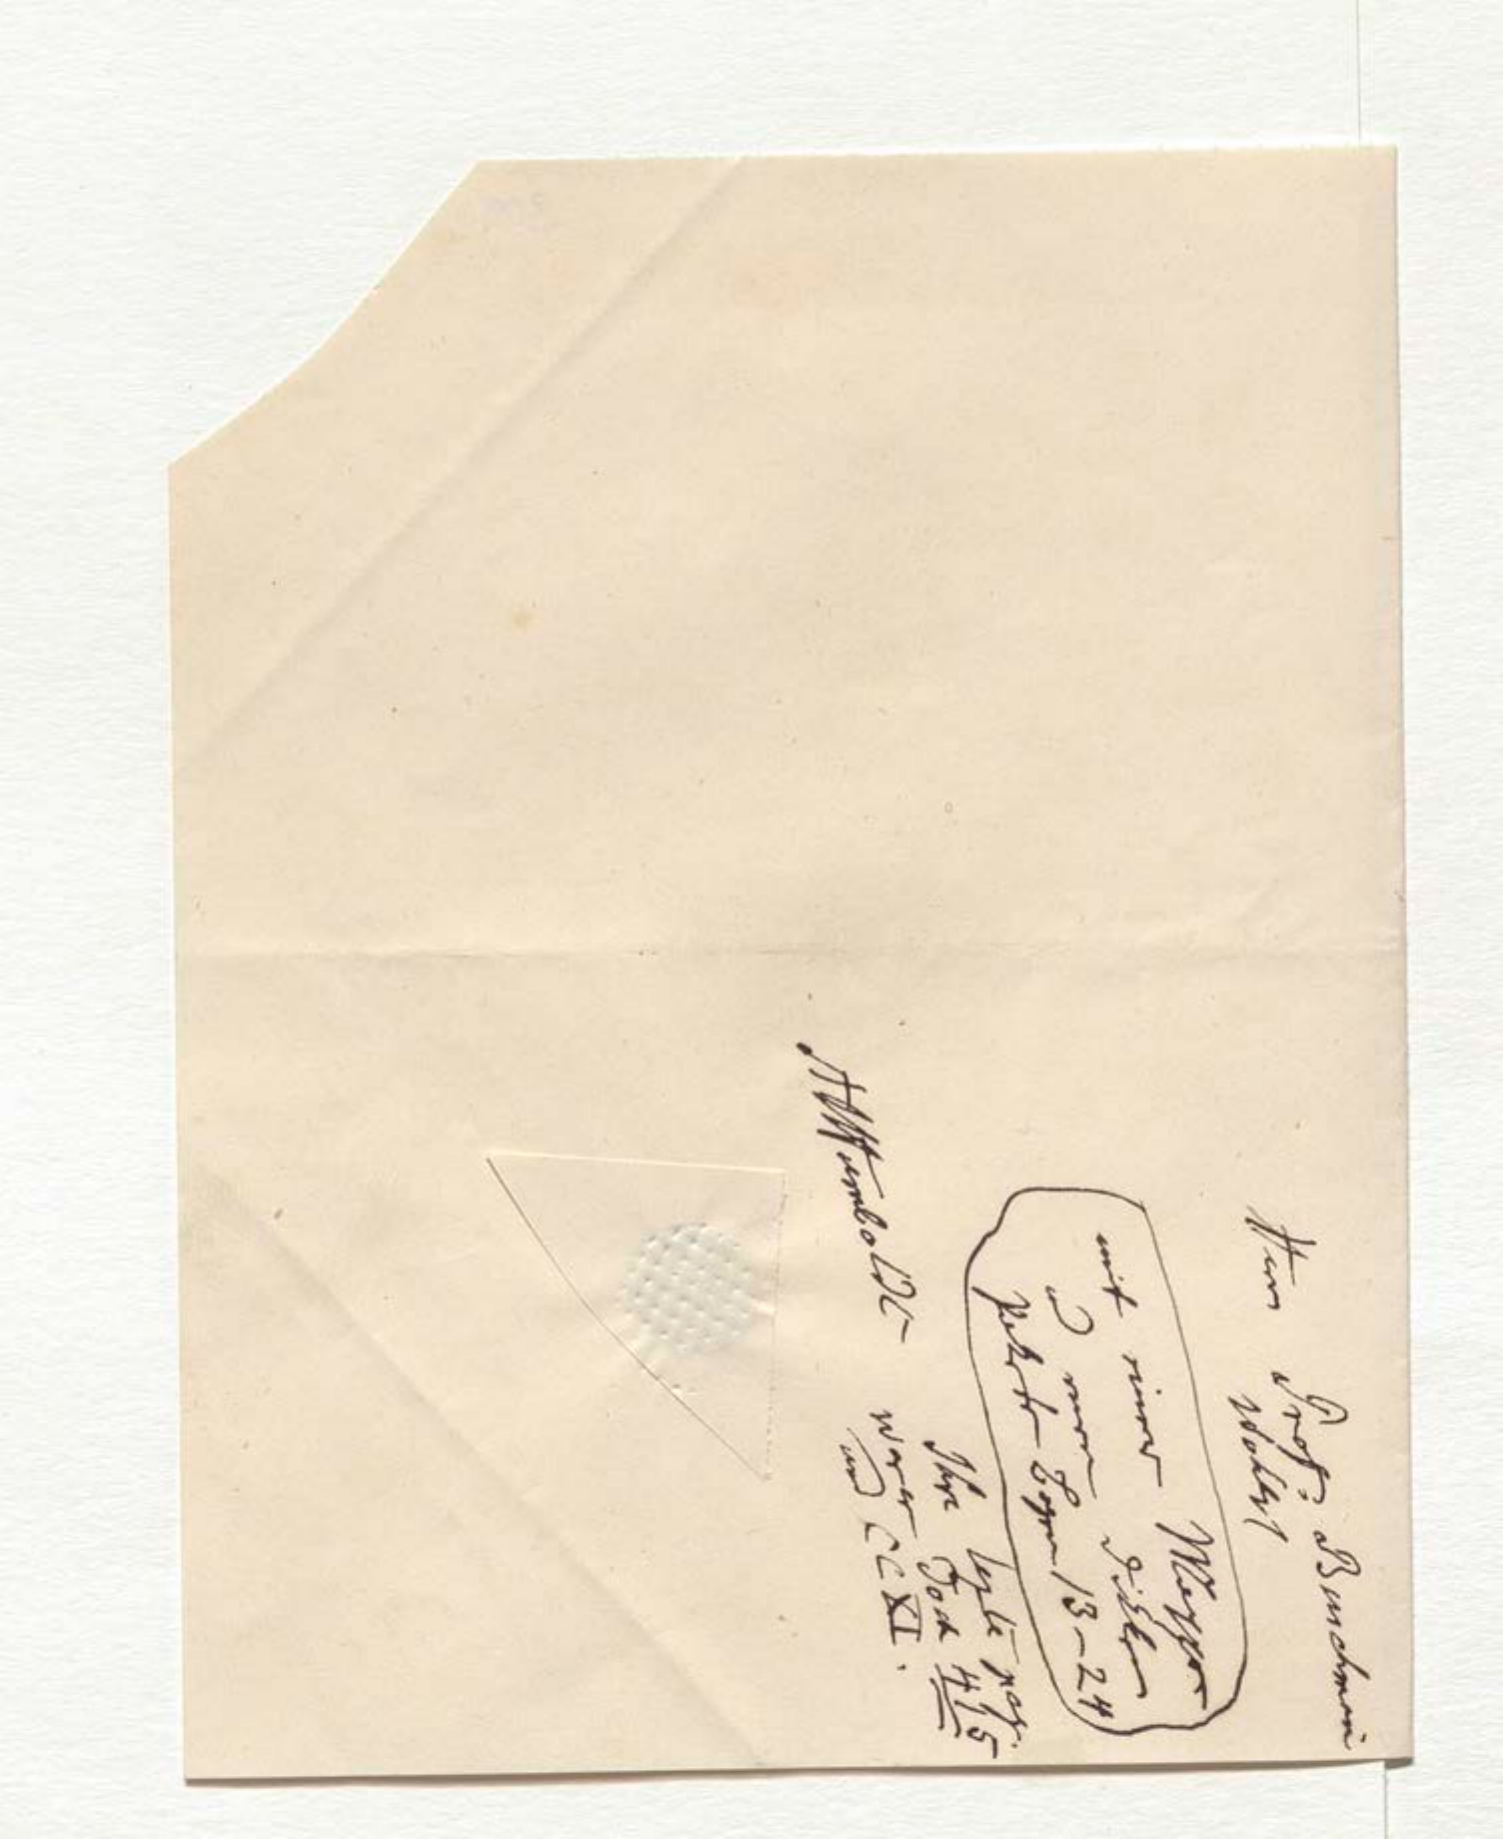 Herrn Prof: Buschmann
Wohlgb
mit einer Mappe
u einem dicken
Pakete Bogen 13–24
Ihre lezte pag.
waren doch 415
und CCXI.
AvHumboldt